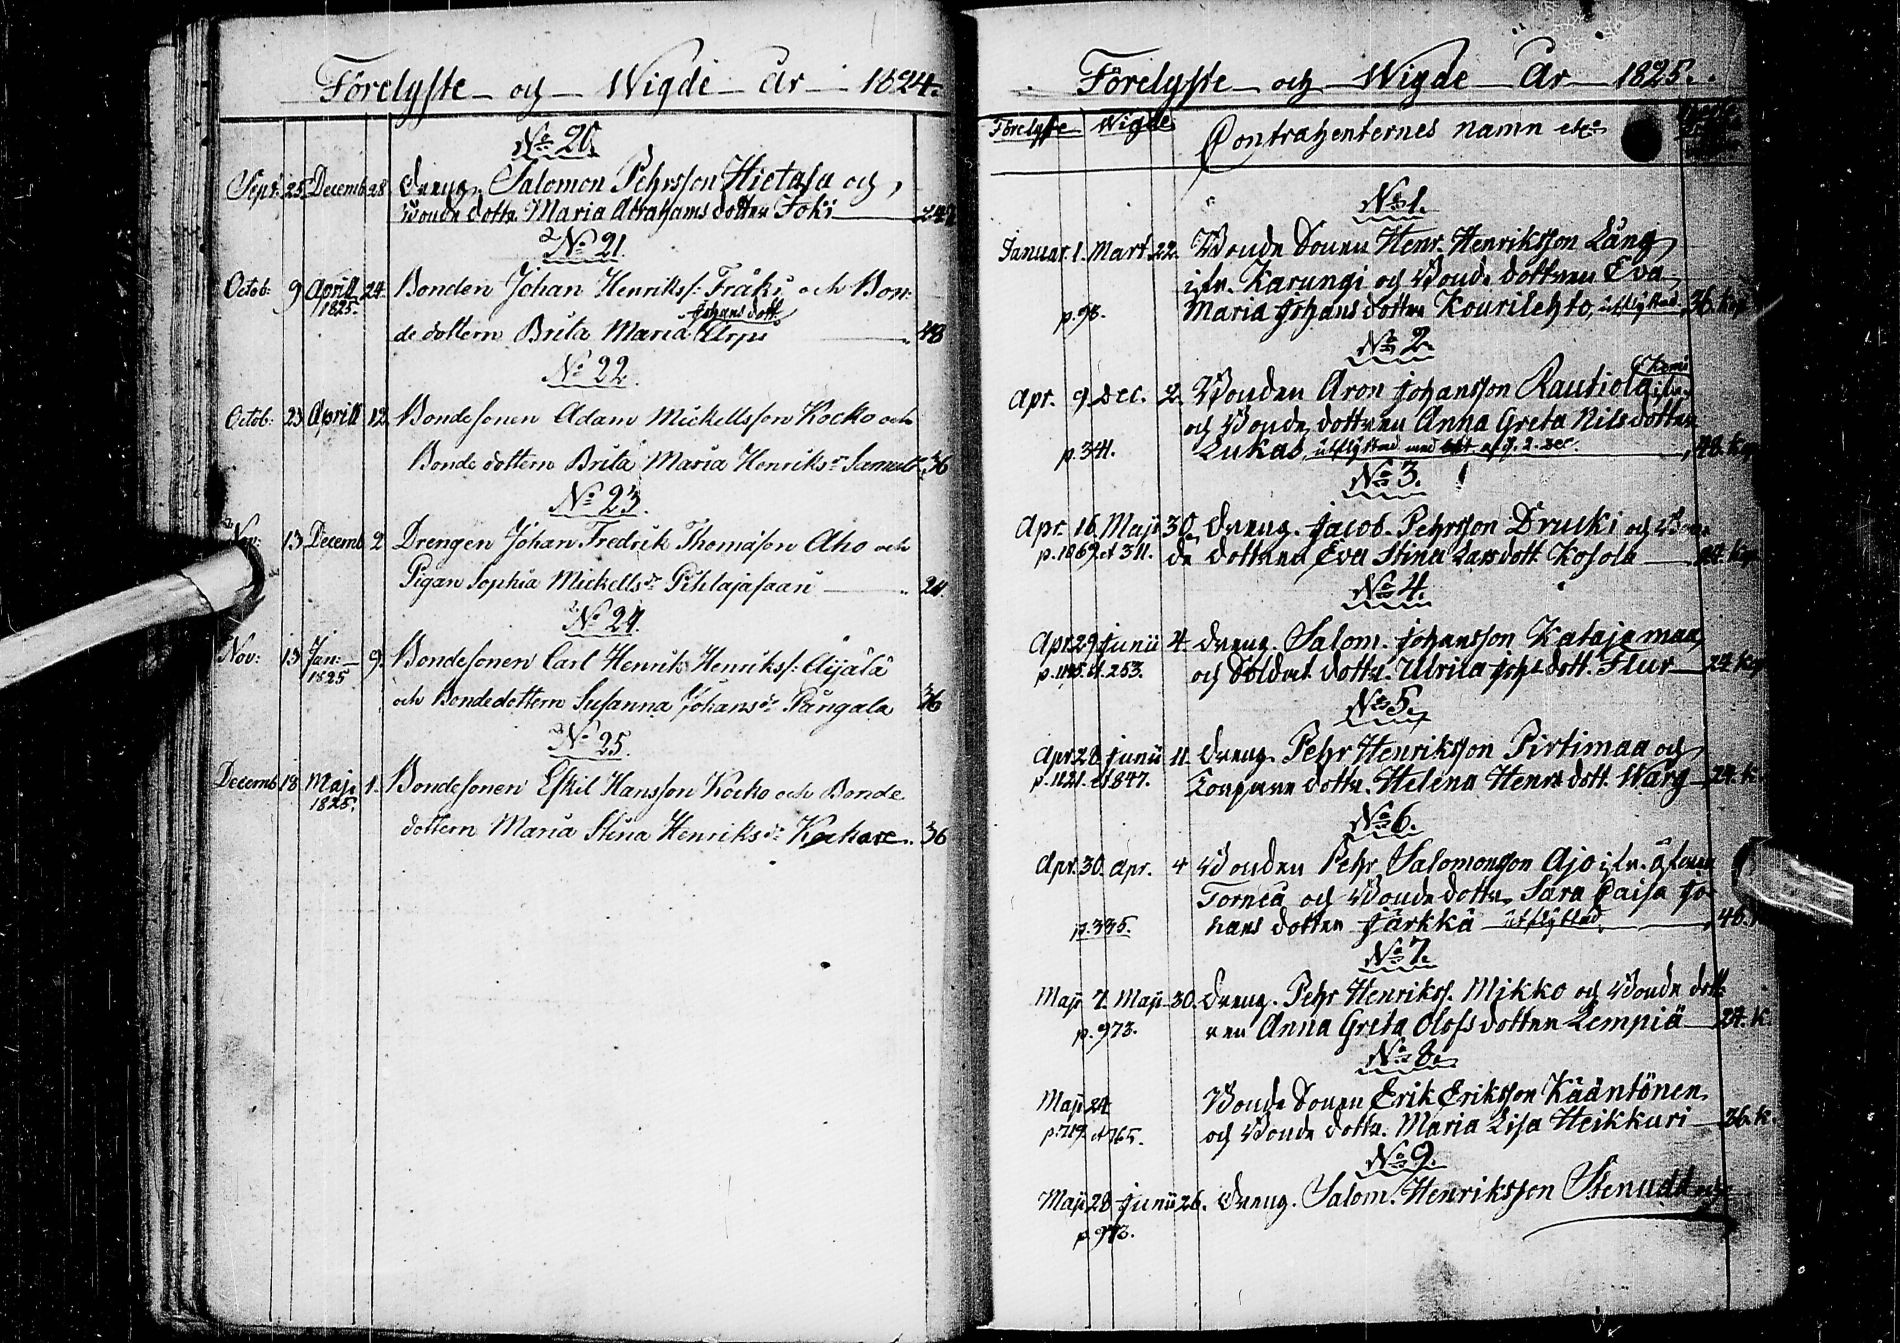 Förelyste och Wigde år 1824.
No 20.
Sept: 25 Decemb 28 Dreng. Salomon Pehrsson Hietaja och
Bonde dottr. Maria Abrahams dotter Joki 24
No 21.
Octob: 9 Aprill 24 Bonden Johan Henrikss: Fräki och Bon-
1825.
Johans dott.
de dottern Brita Maria Arpi 48
No 22.
Octob: 23 Aprill 12 Bondesonen Adam Mickellsson Kocko och
Bonde dottern Brita Maria Henriksdr 36
No 23.
Nov: 13 Decemb 2 Drengen Johan Fredrik Thomasson Aho och
Pigan Sophia Mickellsdr Pihlajasaari 24
No 24.
Nov: 13 Jan: 9. Bondesonen Carl Henrik Henrikss: Äijälä
1825
och Bondedottern Susanna Johansdr Pångala 36
No 25.
Decemb 18 Maji 1. Bondesonen Eskil Hansson Kocko och Bonde
1825.
dottern Maria Stina Henriksdr 36
Förelyste och Wigde År 1825.
Förelyste Wigde Contrahenternes namn etc:
No 1.
Januar. 1. Mart. 22. Bonde Sonen Henr. Henriksson Lång
ifr. Karungi och Bonde dottren Eva
p. 98. Maria Johans dotter Kourilehto, utflyttad, 36. kop
No 2.
Kemi
Apr. 9. Dec. 2. Bonden Aron Johansson Rautiola ifr.
och Bonde dottren Anna Greta Nils dotter
p. 341. Lukas, utflyttad med 2. Dec. 48. kop
No 3.
Apr. 16. Maji 30. Dreng. Jacob Pehrsson Drucki och Bon-
p. 1069 et 311. de dottren Eva Stina Larsdott Kosola kop
No 4.
Apr. 29 Junii 4. Dreng. Salom. Johansson Katajamaa,
p. 1195. et 253. och Soldat dottr. Ulrica Joh: dott. Flur 24 kop
No 5.
Apr. 28 Junii 11. Dreng. Pehr Henriksson Pirtimaa och
p. 1121. et 847. dottr. Helena Henrs dott. Warg 24. k.
No 6.
Apr. 30. Apr. 4 Bonden Pehr Salomonsson Ajo ifr.
Torneå och Bonde dottr. Sara Caisa Jo-
p. 335. hans dotter Järkkä utflyttad, 48.
No 7.
Maji 7. Maji 30. Dreng. Pehr Henrikss. Mikko och Bonde dott-
p. 973. ren Anna Greta Olofs dotter Lempiä 24. k.
No 8.
Maji 24 Bonde Sonen Erik Eriksson Kääntönen
p. 719. et 765. och Bonde dottr. Maria Lisa Heikkuri 36. k.
No 9.
Maji 28 Junii 26. Dreng. Salom. Henriksson Stenudd och
p. 973.